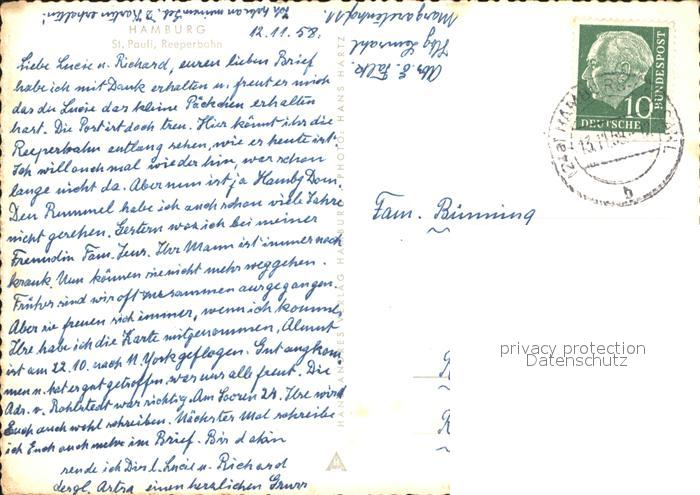 Ich habe an meinen Geb. 2 Karten erhalten!
HAMBURG
St. Pauli, Reeperbahn
12.11.58.
Liebe Lucie u. Richard, euren lieben Brief
habe ich mit Dank erhalten u. freut es mich
das du Lucie das kleine Päckchen erhalten
hast. Die Post ist doch treu. Hier könnt ihr die
Reeperbahn entlang sehen, wie er heute ist.
Ich will auch mal wieder hin, war schon
lange nicht da. Aber nun ist ja Hambg Dom.
Den Rummel habe ich auch schon viele Jahre
nicht gesehen. Gestern war ich bei meiner
Freundin Fam. Jens. Ihr Mann ist immer noch
krank. Nun können sie nicht mehr weggehen.
Früher sind wir oft zusammen ausgegangen.
Aber sie freuen sich immer, wenn ich komme,
Ilse habe ich die Karte mitgenommen,
ist am 22.10. nach N. York geflogen. Gut angekom
men u. hat es gut getroffen, was uns alle freut. Die
Adr. v. Rahlstedt war richtig. Am 24. Ilse wird
Euch auch wohl schreiben. Nächstes Mal schreibe
ich Euch auch mehr im Brief. Bis dahin
sende ich Dir l. Lucie u. Richard
dergl. einen herzlichen Gruss
Margaretenhof 11.
Hbg
Abs. E. Falk.
HANS ANDRES VERLAG HAMBURG PHOTO: HANS HARTZ
10
DEUTSCHE
BUNDESPOST
(24a) HAMBURG
13.11.58
b
Fam. Bünning
privacy protection
Datenschutz